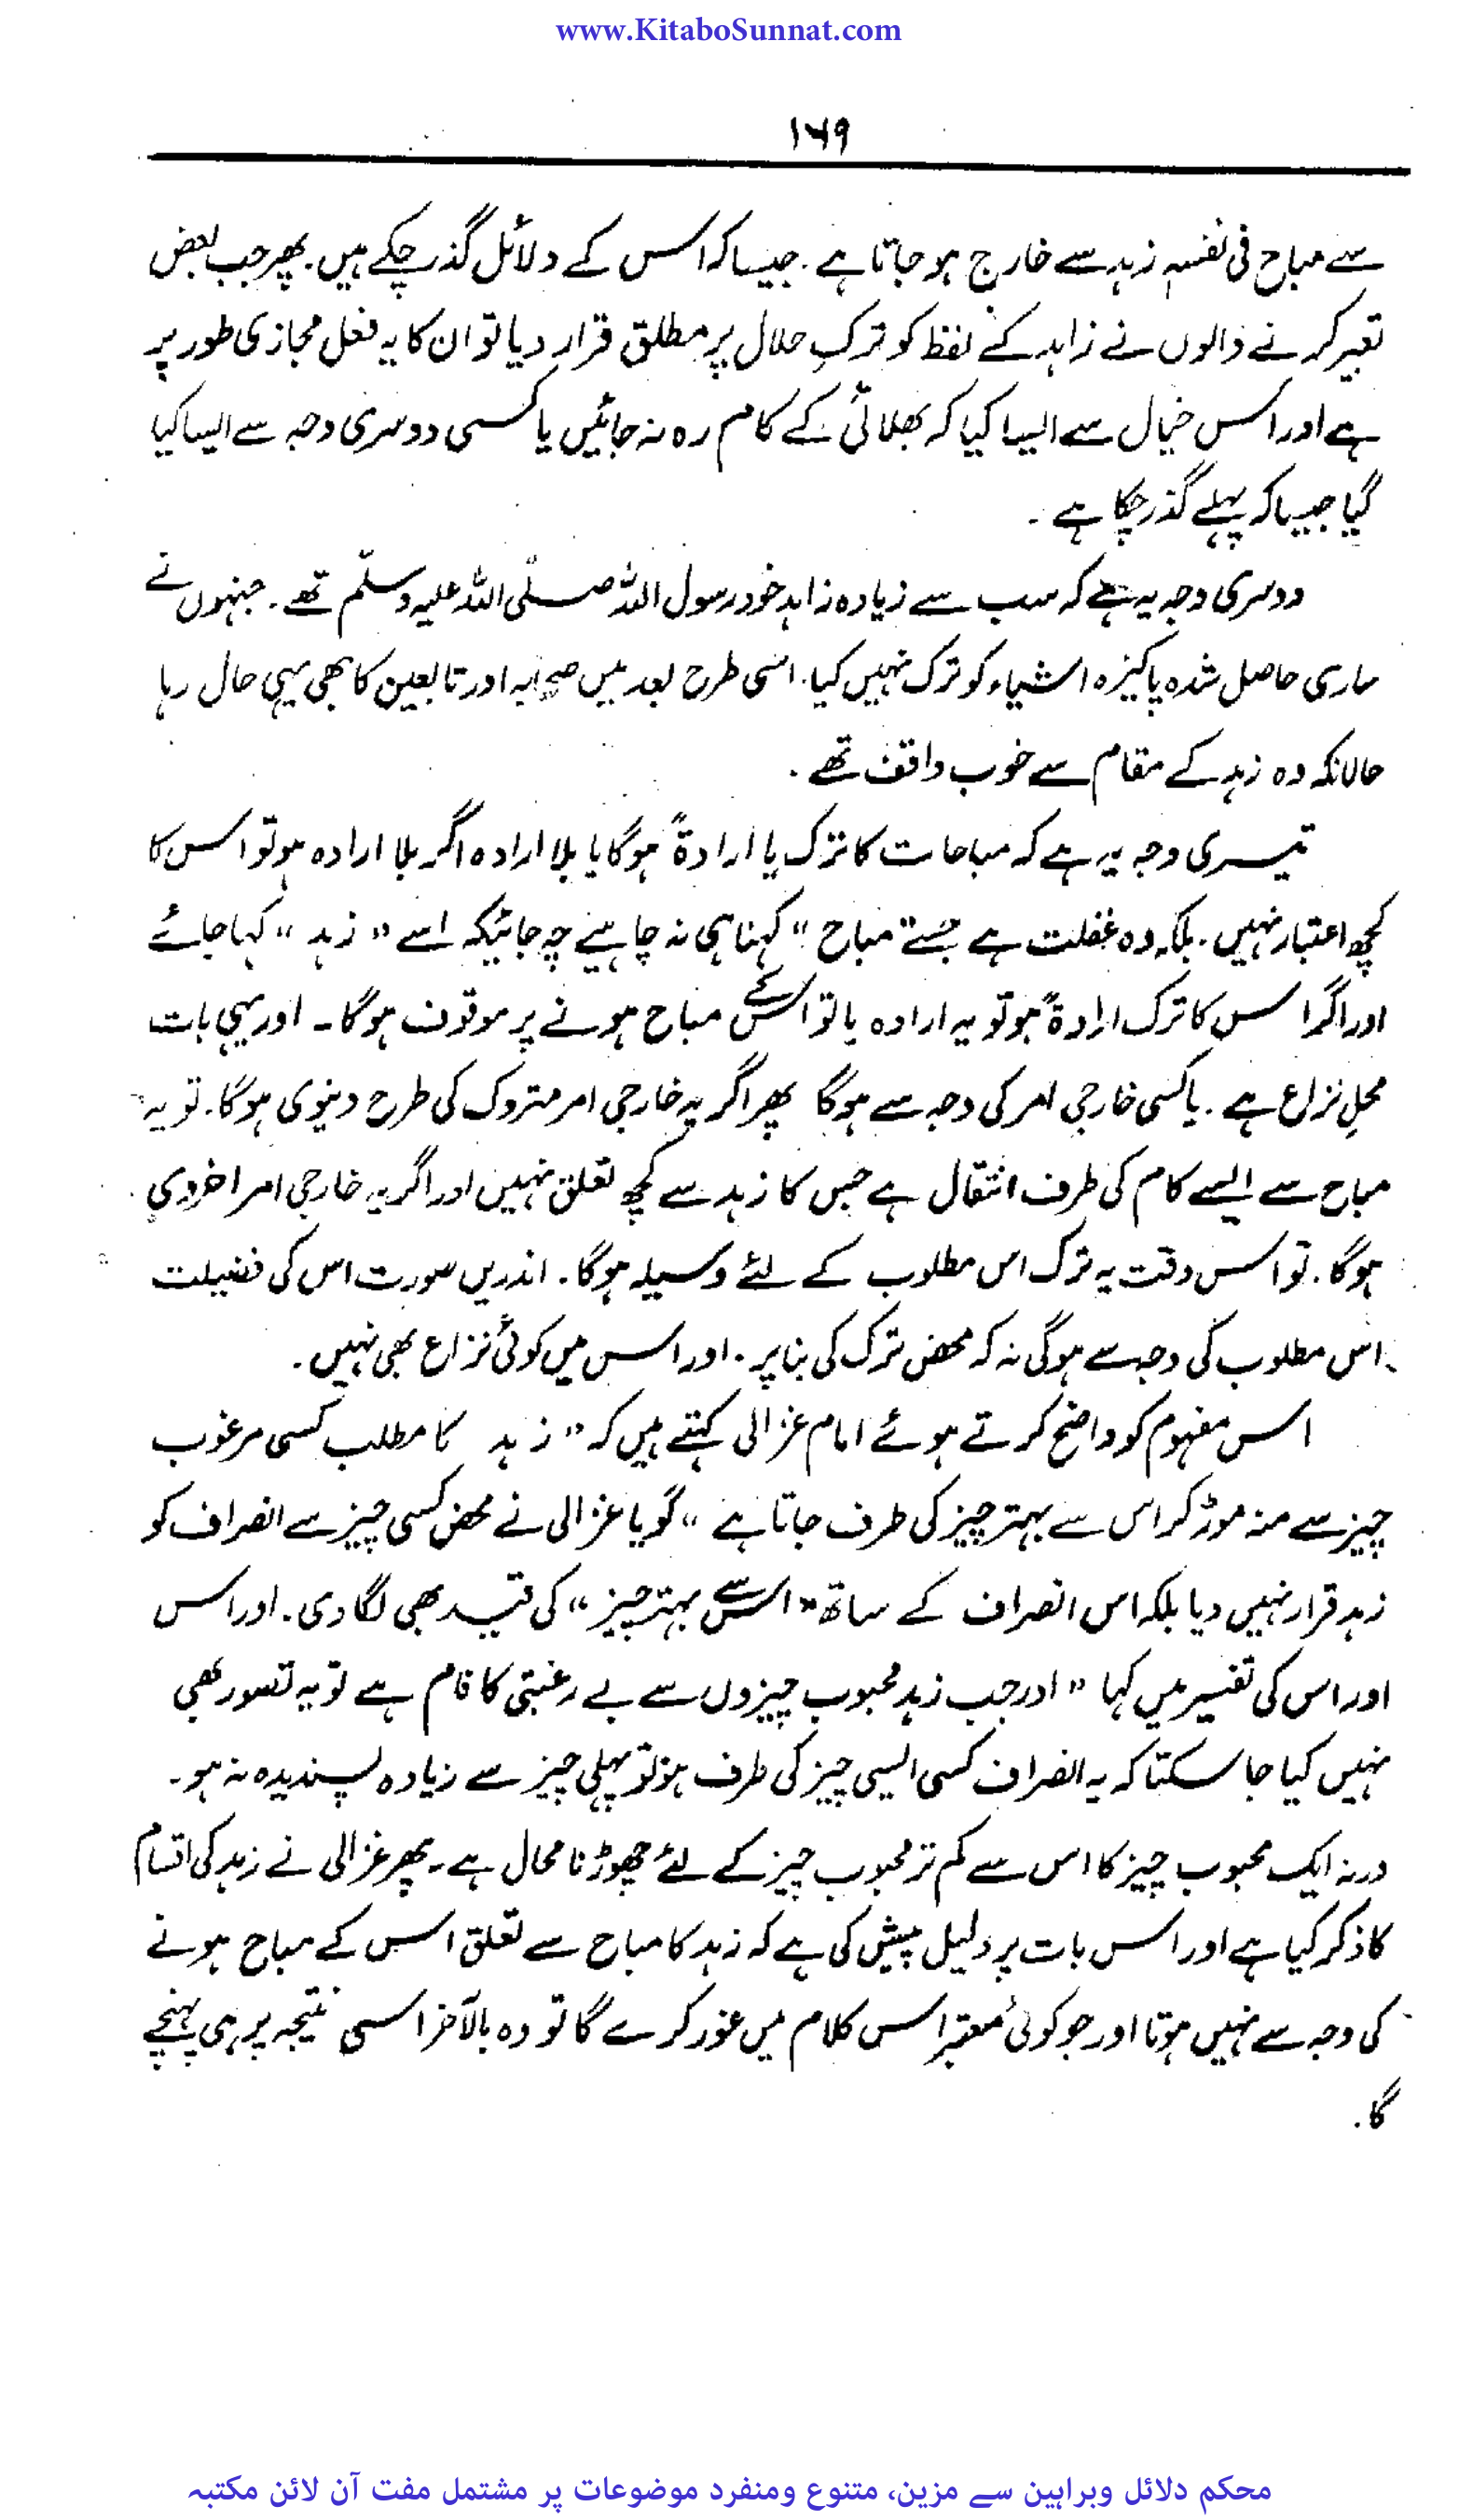 www.KitaboSunnat.com
۱۶۹
سے مباح فی نفسہٖ زہد سے خارج ہو جاتا ہے۔ جیسا کہ اس کے دلائل گذر چکے ہیں۔ پھر جب بعض
تعبیر کرنے والوں نے زاہد کے لفظ کو ترکِ حلال پر مطلق قرار دیا تو ان کا یہ فعل مجازی طور پر
ہے اور اس خیال سے ایسا کیا کہ بھلائی کے کام رہ نہ جائیں یا کسی دوسری وجہ سے ایسا کیا
گیا جیسا کہ پہلے گذر چکا ہے۔
دوسری وجہ یہ ہے کہ سب سے زیادہ زاہد خود رسول اللہ صلّی اللہ علیہ وسلّم تھے۔ جنہوں نے
ساری حاصل شدہ پاکیزہ اشیاء کو ترک نہیں کیا۔ اسی طرح بعد میں صحابہ اور تابعین کا بھی یہی حال رہا
حالانکہ وہ زہد کے مقام سے خوب واقف تھے۔
تیسری وجہ یہ ہے کہ مباحات کا ترک یا ارادۃً ہوگا یا بلا ارادہ اگر بلا ارادہ ہو تو اس کا
کچھ اعتبار نہیں۔ بلکہ وہ غفلت ہے جسے "مباح" کہنا ہی نہ چاہیے چہ جائیکہ اسے "زہد" کہا جائے
اور اگر اس کا ترک ارادۃً ہو تو یہ ارادہ یا تو اس کے مباح ہونے پر موقوف ہوگا۔ اور یہی بات
محلِ نزاع ہے۔ یا کسی خارجی امر کی وجہ سے ہوگا پھر اگر یہ خارجی امر متروک کی طرح دینوی ہوگا۔ تو یہ
مباح سے ایسے کام کی طرف انتقال ہے جس کا زہد سے کچھ تعلق نہیں اور اگر یہ خارجی امر اخروی
ہوگا۔ تو اس وقت یہ ترک اس مطلوب کے لئے وسیلہ ہوگا۔ اندریں صورت اس کی فضیلت
اس مطلوب کی وجہ سے ہوگی نہ کہ محض ترک کی بنا پر۔ اور اس میں کوئی نزاع بھی نہیں۔
اس مفہوم کو واضح کرتے ہوئے امام غزالی کہتے ہیں کہ "زہد کا مطلب کسی مرغوب
چیز سے منہ موڑ کر اس سے بہتر چیز کی طرف جاتا ہے" گویا غزالی نے محض کسی چیز سے انصراف کو
زہد قرار نہیں دیا بلکہ اس انصراف کے ساتھ "اس سے بہتر چیز" کی قید بھی لگا دی۔ اور اس
اور اس کی تفسیر میں کہا "اور جب زہد محبوب چیزوں سے بے رغبتی کا نام ہے تو یہ تصور بھی
نہیں کیا جا سکتا کہ یہ انصراف کسی ایسی چیز کی طرف ہو تو پہلی چیز سے زیادہ پسندیدہ نہ ہو۔
ورنہ ایک محبوب چیز کا اس سے کم تر محبوب چیز کے لئے چھوڑنا محال ہے۔ پھر غزالی نے زہد کی اقسام
کا ذکر کیا ہے اور اس بات پر دلیل پیش کی ہے کہ زہد کا مباح سے تعلق اس کے مباح ہونے
کی وجہ سے نہیں ہوتا اور جو کوئی معتبر اس کلام میں غور کرے گا تو وہ بالآخر اسی نتیجہ پر ہی پہنچے
گا۔
محکم دلائل وبراہین سے مزین، متنوع ومنفرد موضوعات پر مشتمل مفت آن لائن مکتبہ